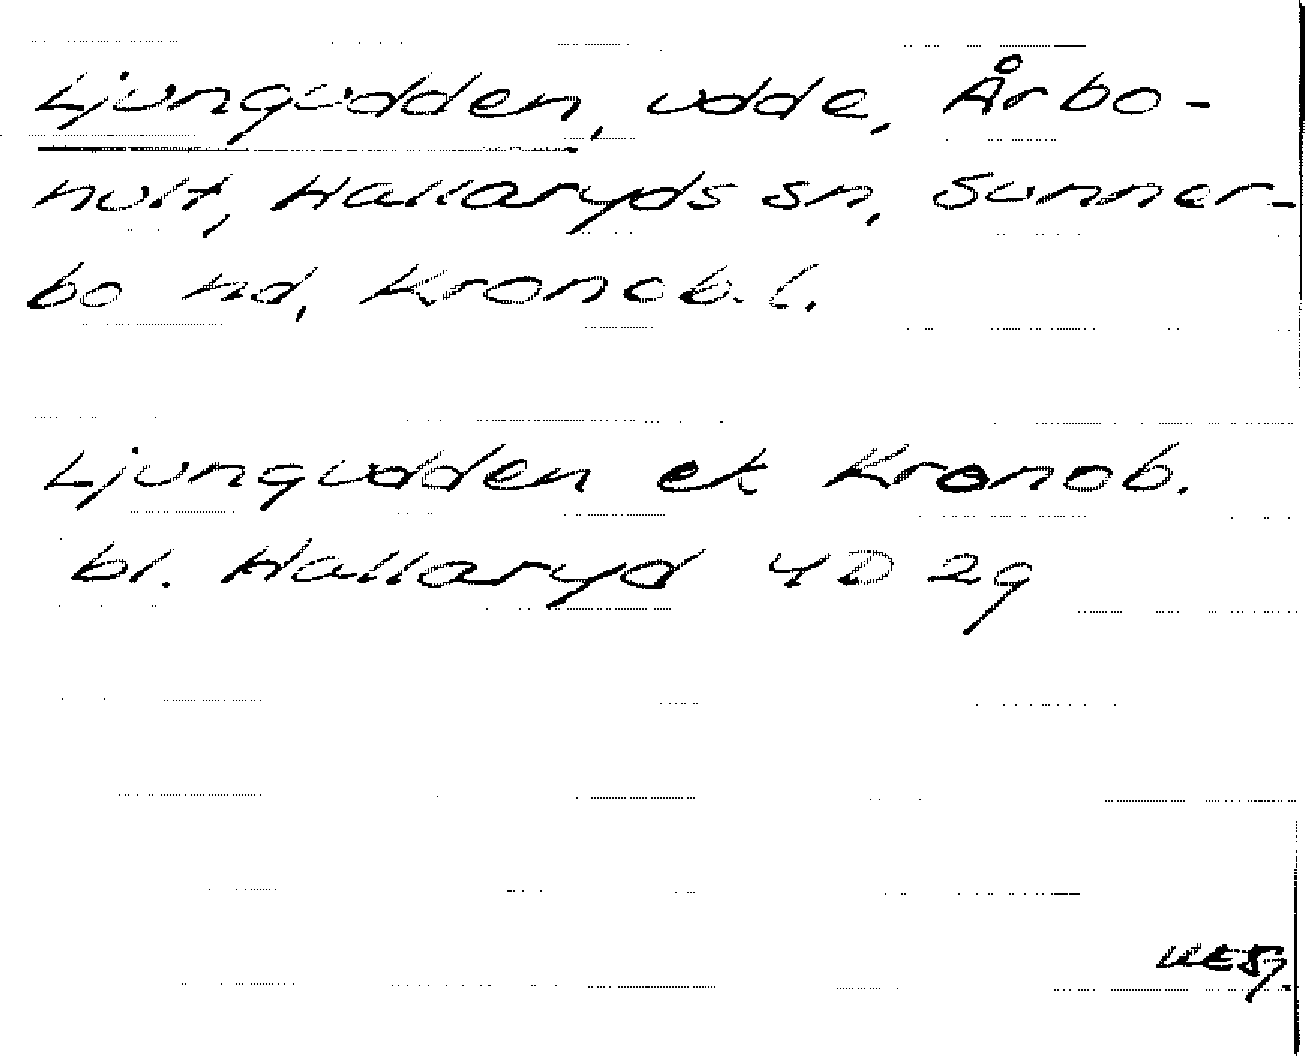 Ljungudden, udde, Årbo-
hult, Hallaryds sn, Sunner-
bo hd, Kronob. l.
Ljungudden ek Kronob.
bl. Hallaryd 4D 2g